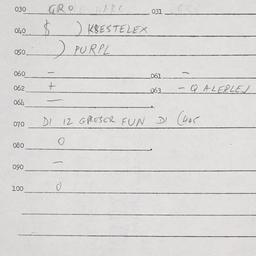 030 GRO 031
040 $ ) KBESTELEX
050 ) PURPL
060 - 061 -
062 + 063 - Q ALEFLEJ
064 -
070 DI 12 GRESER FUN DI
080 0
090 -
100 0